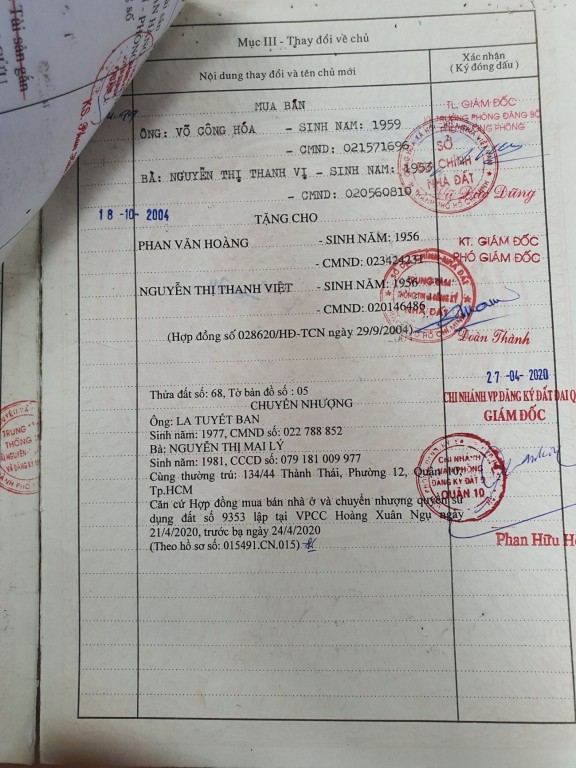 Mục III - Thay đổi về chủ
Nội dung thay đổi và tên chủ mới
Xác nhận
(Ký đóng dấu)
MUA BÁN
ÔNG: VÕ CÔNG HÓA - SINH NĂM: 1959
- CMND: 021571696
BÀ: NGUYỄN THỊ THANH VỊ - SINH NĂM: 1953
- CMND: 020560810
TL. GIÁM ĐỐC
PHÒNG
SỞ
NHÀ ĐẤT
Dũng
18 -10- 2004
TẶNG CHO
PHAN VĂN HOÀNG - SINH NĂM: 1956
- CMND: 023424231
NGUYỄN THỊ THANH VIỆT - SINH NĂM: 1956
- CMND: 020146486
(Hợp đồng số 028620/HĐ-TCN ngày 29/9/2004)
KT. GIÁM ĐỐC
PHÓ GIÁM ĐỐC
TRUNG TÂM
NHÀ ĐẤT
Đoàn Thành
27 -04- 2020
Thửa đất số: 68, Tờ bản đồ số : 05
CHUYỂN NHƯỢNG
Ông: LA TUYẾT BAN
Sinh năm: 1977, CMND số: 022 788 852
Bà: NGUYỄN THỊ MAI LÝ
Sinh năm: 1981, CCCD số: 079 181 009 977
Cùng thường trú: 134/44 Thành Thái, Phường 12, Quận 10,
Tp.HCM
Căn cứ Hợp đồng mua bán nhà ở và chuyển nhượng quyền sử
dụng đất số 9353 lập tại VPCC Hoàng Xuân Ngụ ngày
21/4/2020, trước bạ ngày 24/4/2020
(Theo hồ sơ số: 015491.CN.015)
CHI NHÁNH VP ĐĂNG KÝ ĐẤT ĐAI Q
GIÁM ĐỐC
CHI NHÁNH
VĂN PHÒNG
ĐĂNG KÝ ĐẤT Đ
QUẬN 10
Phan Hữu
TRUNG
THÔNG